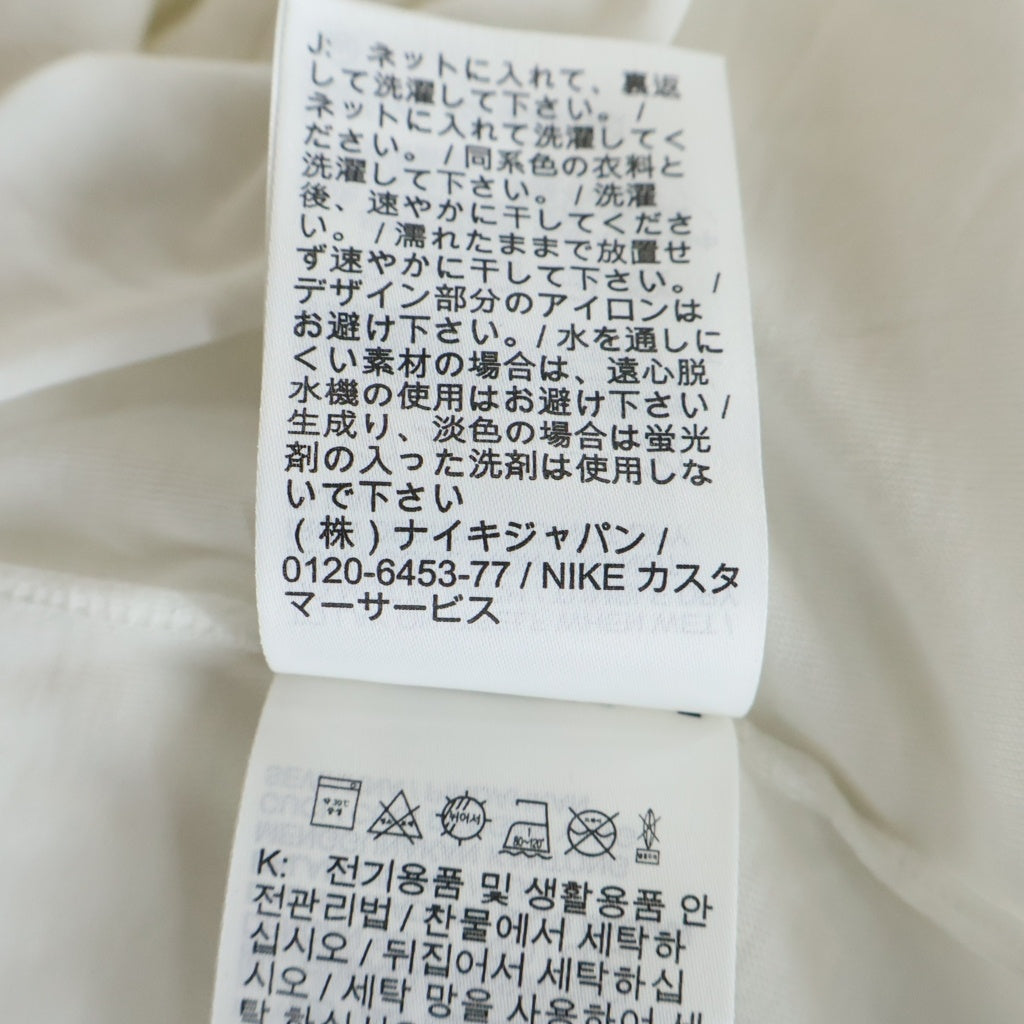 J: ネットに入れて、裏返
して洗濯して下さい。/
ネットに入れて洗濯してく
ださい。/同系色の衣料と
洗濯して下さい。/洗濯
後、速やかに干してくださ
い。/濡れたままで放置せ
ず速やかに干して下さい。/
デザイン部分のアイロンは
お避け下さい。/水を通しに
くい素材の場合は、遠心脱
水機の使用はお避け下さい/
生成り、淡色の場合は蛍光
剤の入った洗剤は使用しな
いで下さい
(株)ナイキジャパン/
0120-6453-77 / NIKE カスタ
マーサービス
K: 전기용품 및 생활용품 안
전관리법 / 찬물에서 세탁하
십시오 / 뒤집어서 세탁하십
시오 / 세탁 망을 사용하여 세